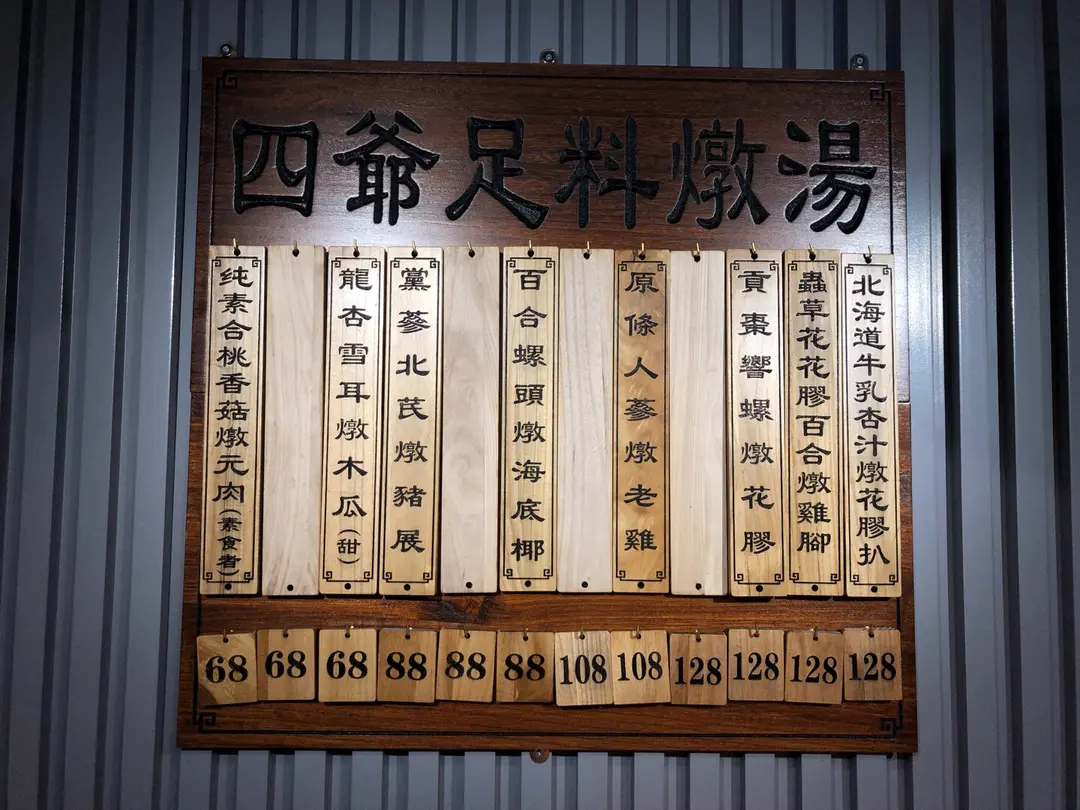 四爺足料燉湯
北海道牛乳杏汁燉花膠扒
蟲草花花膠百合燉雞腳
貢棗響螺燉花膠
原條人蔘燉老雞
百合螺頭燉海底椰
黨蔘北芪燉豬展
龍杏雪耳燉木瓜(甜)
纯素合桃香菇燉元肉(素食者)
68
68
68
88
88
88
108
108
128
128
128
128